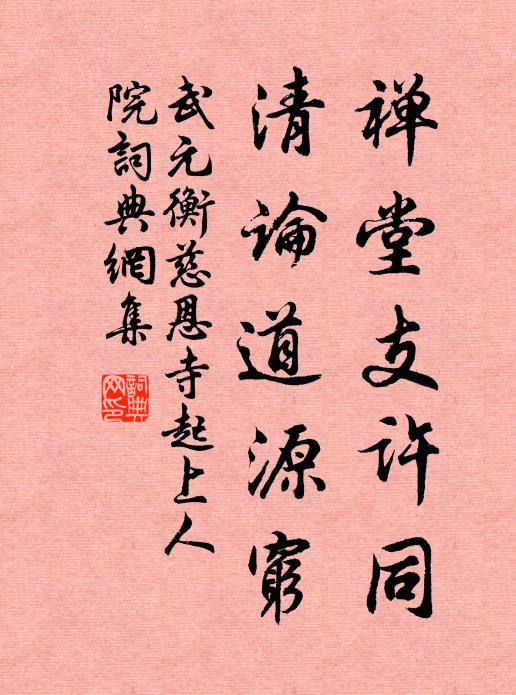 禅堂支许同
清論道源窮
武元衡慈恩寺起上人
院詞典網集
詞典網印